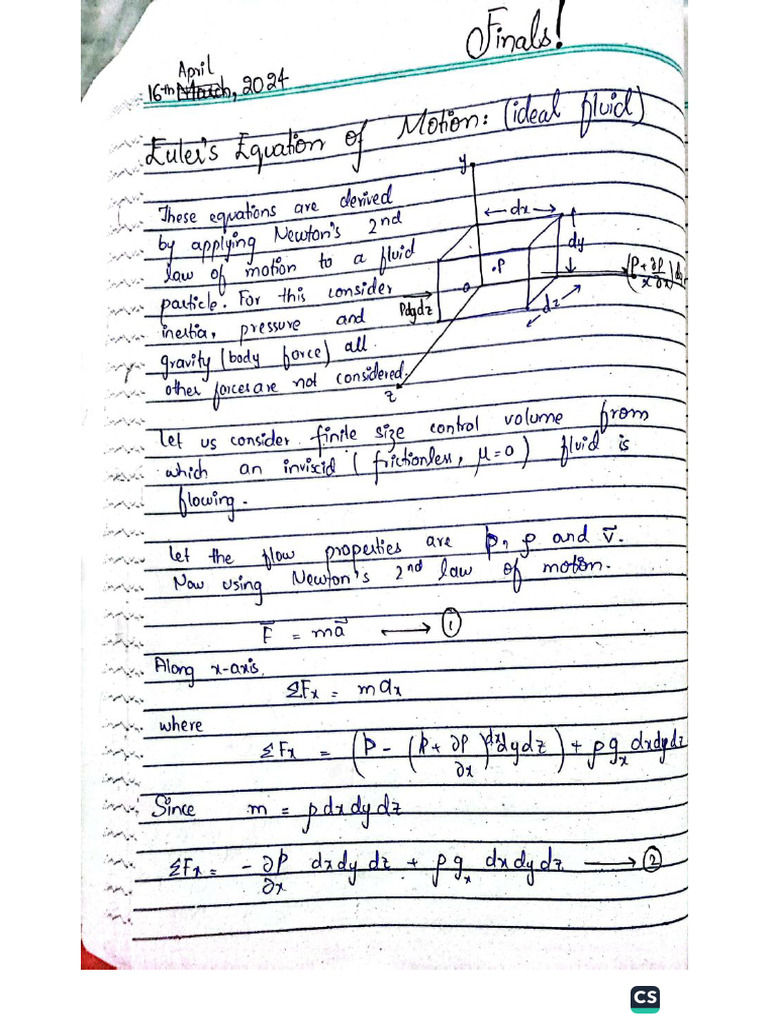 Finals!
April
16th March, 2024
Euler's Equation of Motion: (ideal fluid)
These equations are derived
by applying Newton's 2nd
law of motion to a fluid
particle. For this consider
inertia, pressure and
gravity (body force) all
other forces are not considered.
y
dx
dy
.P
o
Pdydz
dz
z
Let us consider finite size control volume from
which an inviscid (frictionless, μ=0) fluid is
flowing.
Let the flow properties are p, ρ and v⃗.
Now using Newton's 2nd law of motion.
F⃗ = ma⃗ ⟶ ①
Along x-axis.
ΣFx = max
where
ΣFx = (P - (P + ∂P/∂x dx)dydz) + ρgx dxdydz
Since m = ρdxdydz
ΣFx = -∂P/∂x dxdydz + ρgx dxdydz ⟶ ②
CS